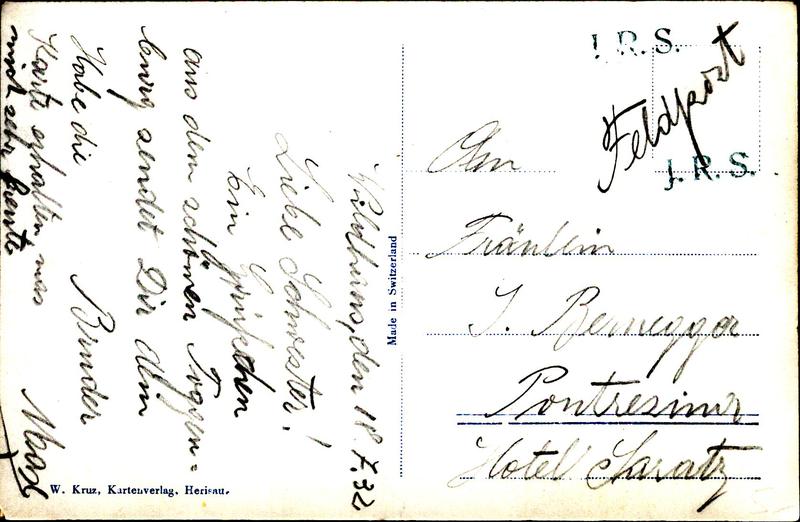 Wildhaus, den 18.7.32
Liebe Schwester!
Ein Grüsschen
aus dem schönen Toggen=
burg sendet Dir dein
Bruder
Max
Habe die
Karte erhalten was
mich sehr freute
W. Kruz, Kartenverlag, Herisau.
Made in Switzerland
J. R. S.
Feldpost
J. R. S.
An
Fräulein
J. Bernegger
Pontresina
Hotel Saratz